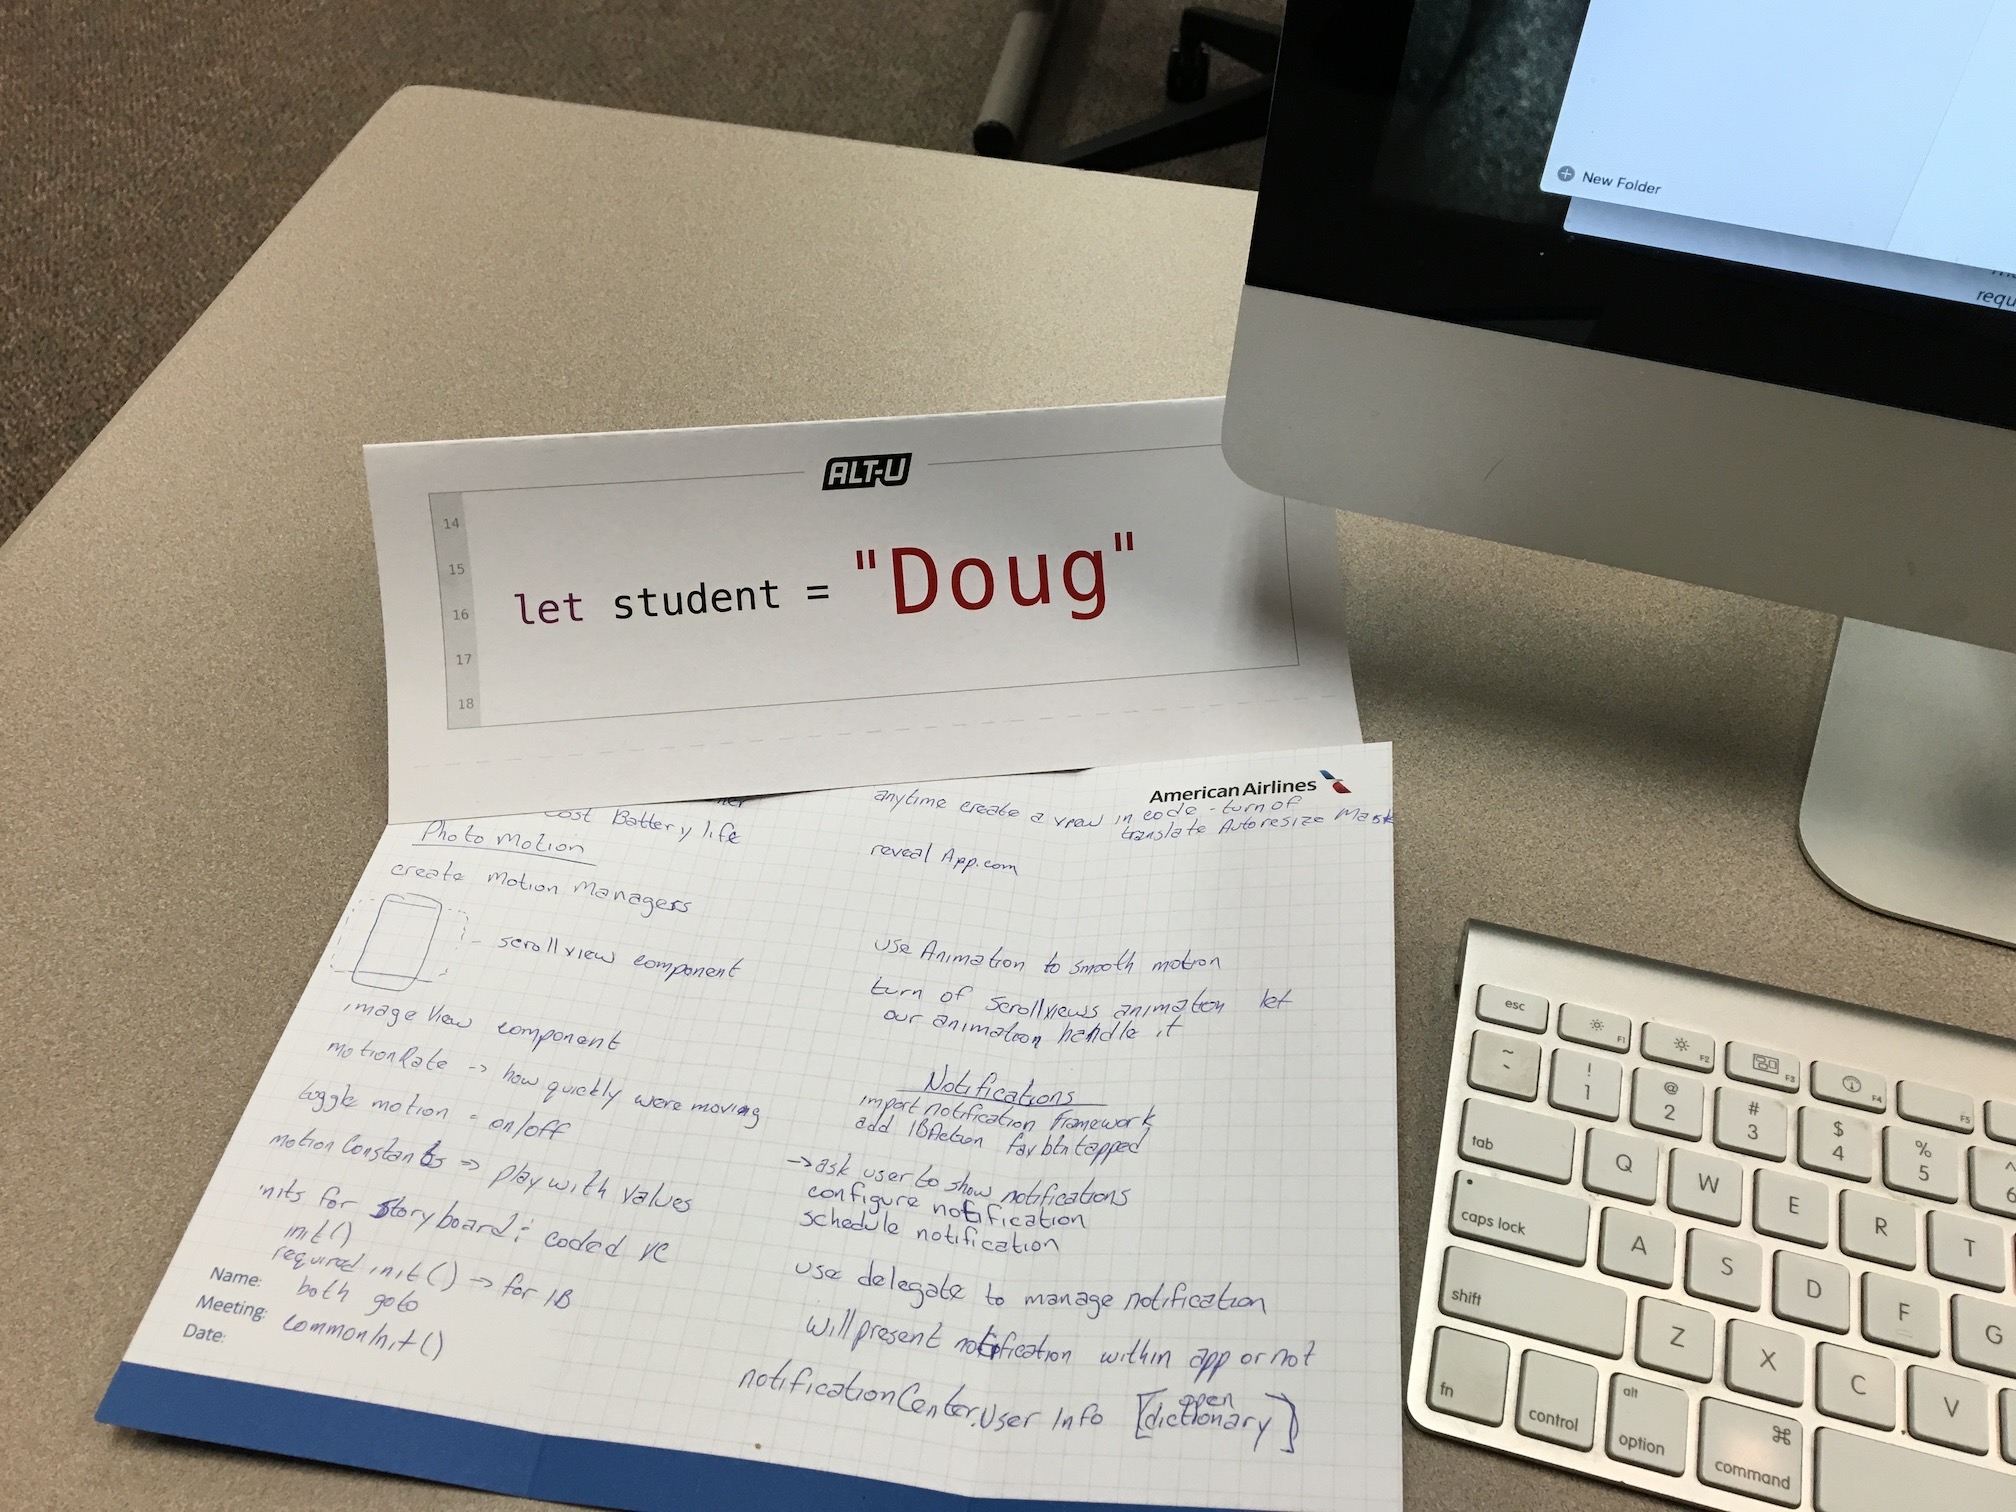 New Folder
requ
ALT-U
14
15
16
17
18
let student = "Doug"
American Airlines
cost Battery life
Photo Motion
create motion Managers
scrollview component
imageView component
motionRate -> how quickly were moving
toggle motion = on/off
motionConstants => play with values
inits for Storyboard & coded VC
init()
required init() -> for IB
both goto
commonInit()
Name:
Meeting:
Date:
anytime create a view in code - turn of
translate Autoresize Mask
reveal App.com
use Animation to smooth motion
turn of Scrollviews animation let
our animation handle it
Notifications
import notification framework
add IBAction fav btn tapped
->ask user to show notifications
configure notification
schedule notification
use delegate to manage notification
will present notification within app or not
notificationCenter.User Info [open dictionary]
esc
F1
F2
F3
F4
F5
~
! 1
@ 2
# 3
$ 4
% 5
^ 6
tab
Q
W
E
R
T
caps lock
A
S
D
F
G
shift
Z
X
C
V
fn
control
alt
option
⌘
command